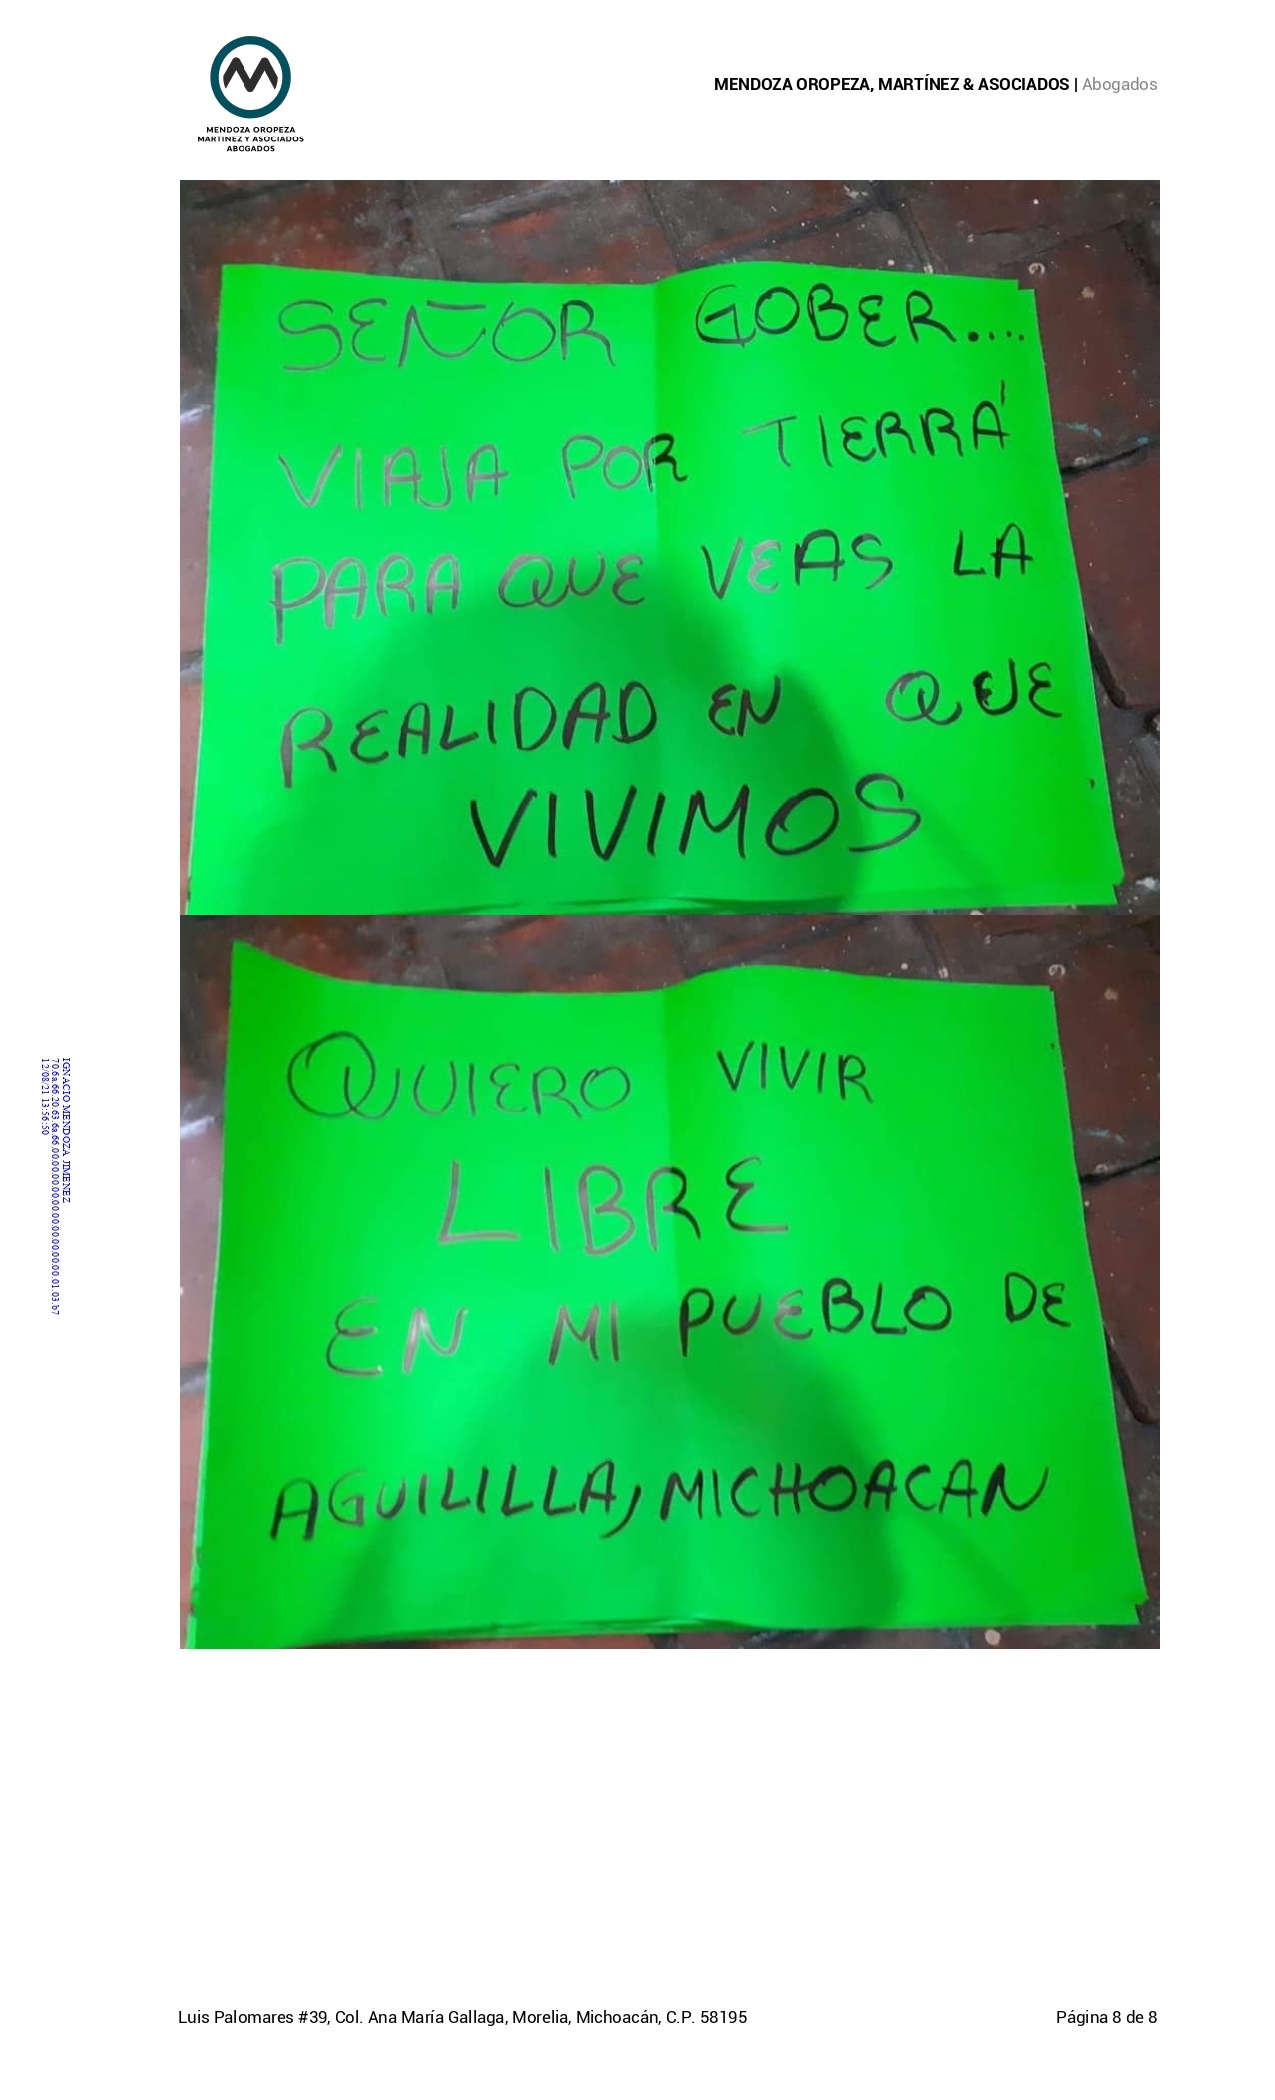 MENDOZA OROPEZA
MARTÍNEZ Y ASOCIADOS
ABOGADOS
MENDOZA OROPEZA, MARTÍNEZ & ASOCIADOS | Abogados
SEÑOR GOBER....
VIAJA POR TIERRA
PARA QUE VEAS LA
REALIDAD EN QUE
VIVIMOS
QUIERO VIVIR
LIBRE
EN MI PUEBLO DE
AGUILILLA, MICHOACAN
IGNACIO MENDOZA JIMENEZ
70.6a.66.20.63.6a.66.00.00.00.00.00.00.00.00.00.00.01.03.b7
12/08/21 13:56:50
Luis Palomares #39, Col. Ana María Gallaga, Morelia, Michoacán, C.P. 58195
Página 8 de 8